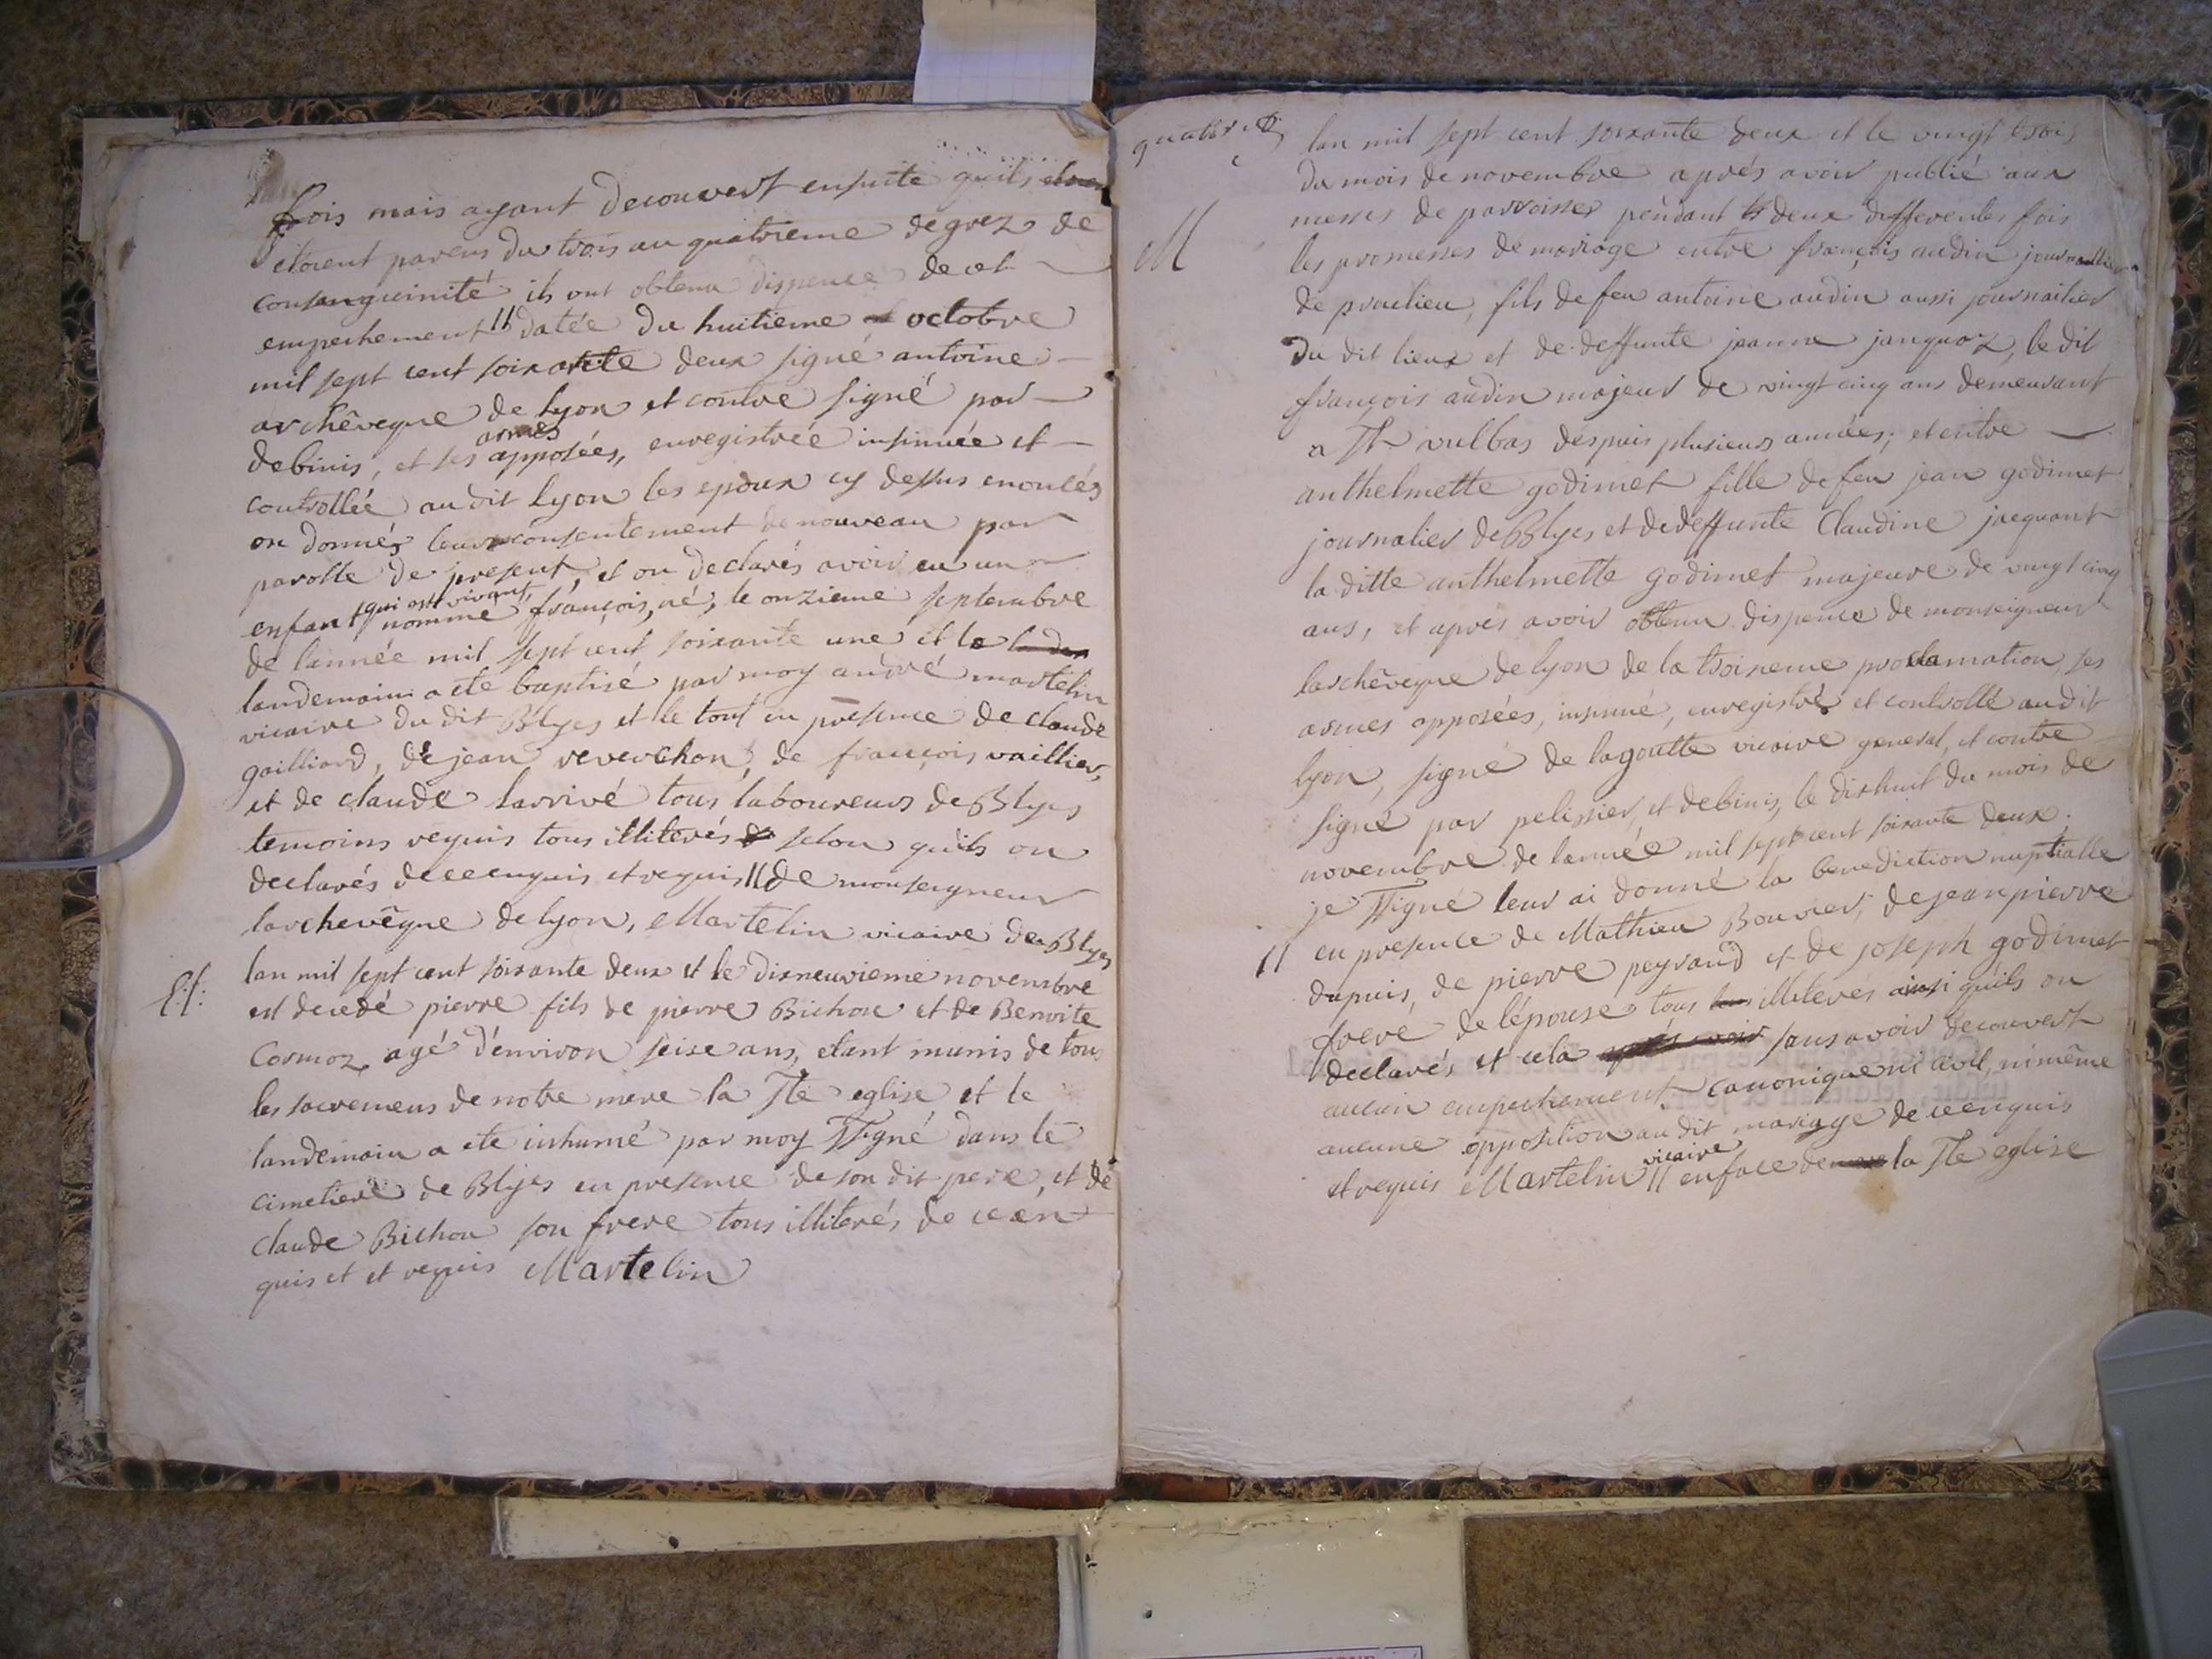 fois mais ayant decouvert ensuite quils
étoient parens du trois au quatrieme degrez de
consanguinité ils ont obtenu dispence de cet
empechement // datée du huitieme octobre
mil sept cent soixante deux signé antoine
archêveque de lyon et contre signé par
debinis, et ses armes apposées, enregistrée insinuée et
controllée au dit lyon les epoux cy dessus enoncés
on donnés leur consentement de nouveau par
parolle de present, et on declarés avoir eu un
enfant qui est vivant, nommé françois, né, le onzieme septembre
de lannée mil sept cent soixante une et le
landemain a ete baptisé par moy andré martelin
vicaire du dit Blyes et le tout en presence de claude
gailliard, de jean reverchon, de françois vaillier,
et de claude larrivé tous laboureurs de Blyes
temoins requis tous illiterés selon quils on
declarés de ce enquis et requis // de monseigneur
larchevêque de lyon, Martelin vicaire de Blyes
E:t:
lan mil sept cent soixante deux et le disneuvieme novembre
est decedé pierre fils de pierre Bichon et de Benoite
Cormoz, agé d'environ seise ans, etant munis de tous
les sacremens de notre mere la Ste eglise et le
landemain a ete inhumé par moy ssigné dans le
cimetiere de Blyes en presence de son dit pere, et de
claude Bichon son frere tous illiterés de ce en
quis et et requis Martelin
M
lan mil sept cent soixante deux et le vingt trois
du mois de novembre aprés avoir publié aux
messes de parroisses pendant deux differentes fois
les promesses de mariage entre françois audin journaillier
de proulieu, fils de feu antoine audin aussi journailier
du dit lieux et de deffunte jeanne janquoz, le dit
françois audin majeur de vingt cinq ans demeurant
a St vulbas despuis plusieurs années; et entre
anthelmette godimet fille de feu jean godimet
journalier de Blyes et de deffunte Claudine jacquant
la ditte anthelmette godimet majeure de vingt cinq
ans, et aprés avoir obtenu dispence de monseigneur
larchêveque de lyon de la troisieme proclamation, ses
armes apposées, insinué, enregistré et controllé au dit
lyon, signé de lagoutte vicaire general, et contre
signé par pelissier, et debinis, le dixhuit du mois de
novembre de lannée mil sept cent soixante deux.
je ssigné leur ai donné la benediction nuptialle
// en presence de Mathieu Bouvier, de jean pierre
dupuis, de pierre peyraud et de joseph godimet
frere de lépouse tous illiterés ainsi quils on
declarés et cela sans avoir decouvert
aucun empechement canonique ni civil, ni même
aucune opposition au dit mariage de ce enquis
et requis Martelin vicaire // en face de la Ste eglise